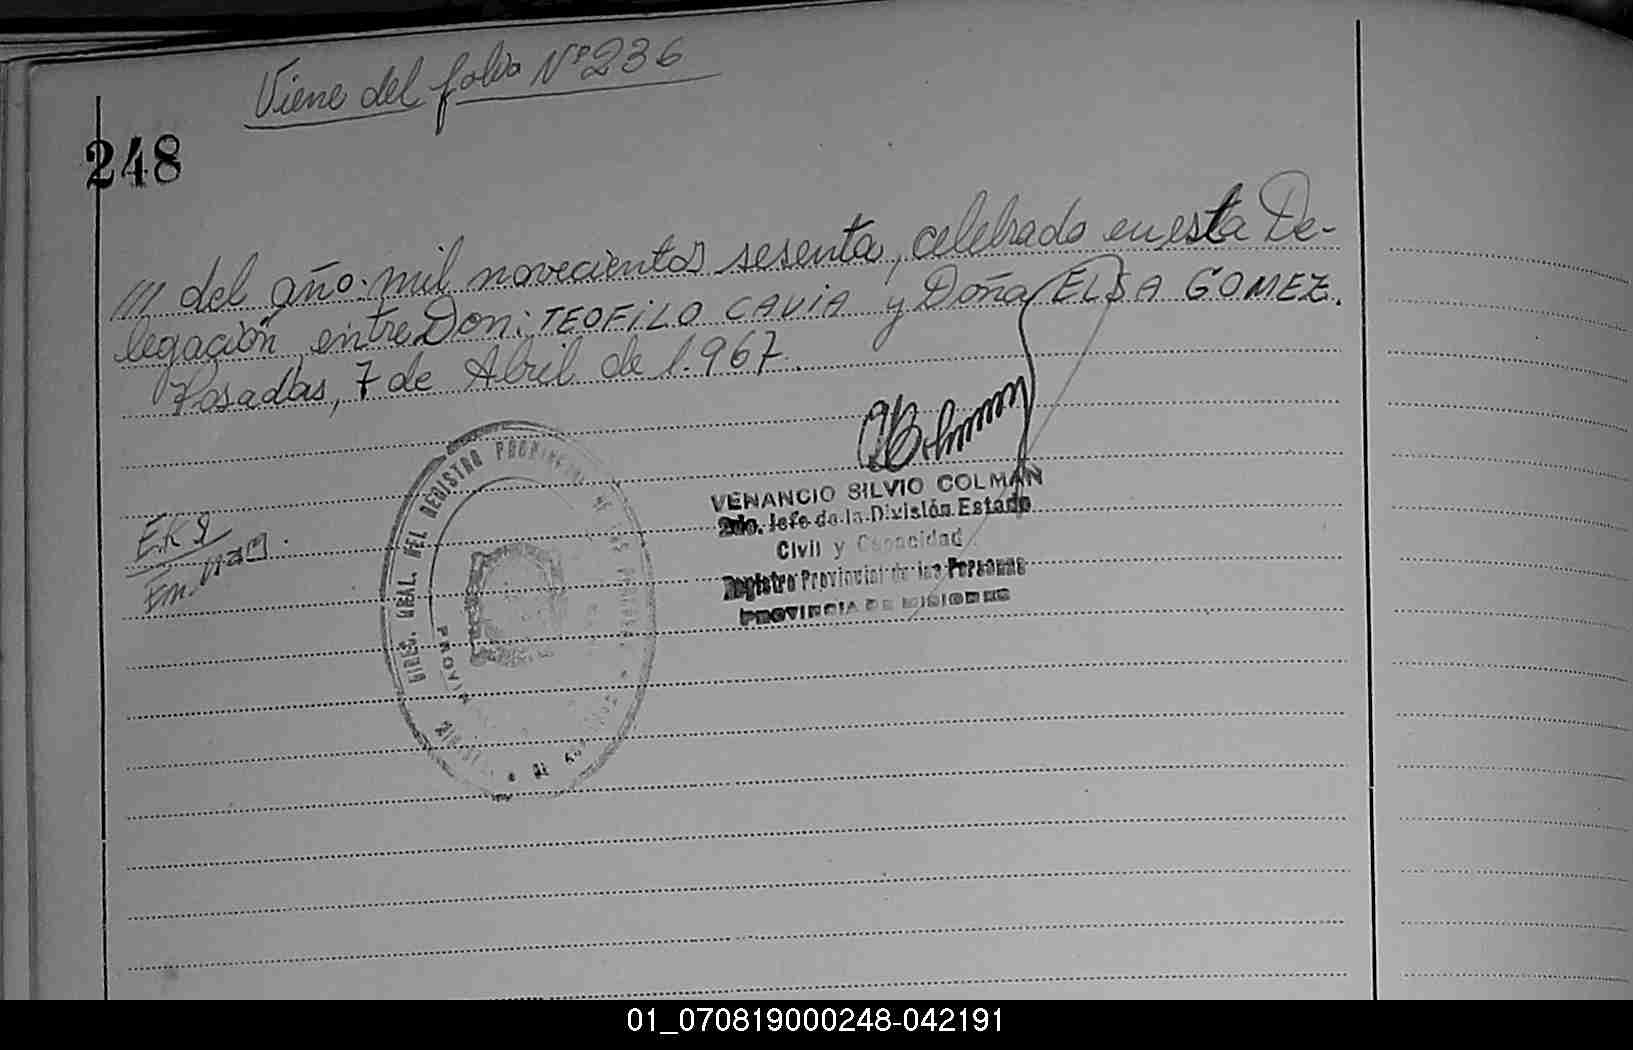 Viene del folio Nº 236
248
/// del año mil novecientos sesenta, celebrado en esta De-
legación, entre Don: TEOFILO CAVIA y Doña ELSA GOMEZ.
Posadas, 7 de Abril de 1.967.
VENANCIO SILVIO COLMAN
2do. Jefe de la División Estado
Civil y Capacidad
Registro Provincial de las Personas
PROVINCIA DE MISIONES
DIREC. GRAL. DEL REGISTRO PROVINCIAL DE LAS PERSONAS
01_070819000248-042191